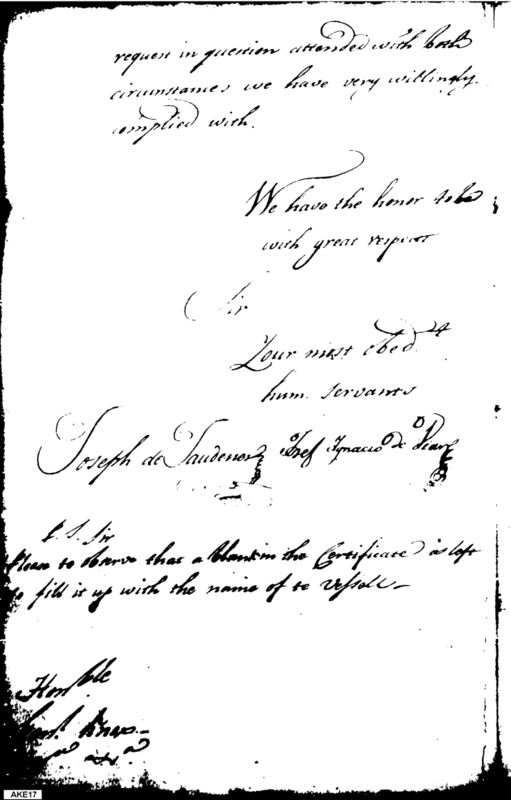 request in question attended with both
circumstances we have very willingly
complied with.
We have the honor to be
with great respect
Sir
Your most obed.t &
hum. Servants
Joseph de Jaudenes Josef Ignacio de Viar
P. S. Sir
Please to observe that a blank in the Certificate is left
to fill it up with the name of te Vessell
Honble
Knox
AKE17